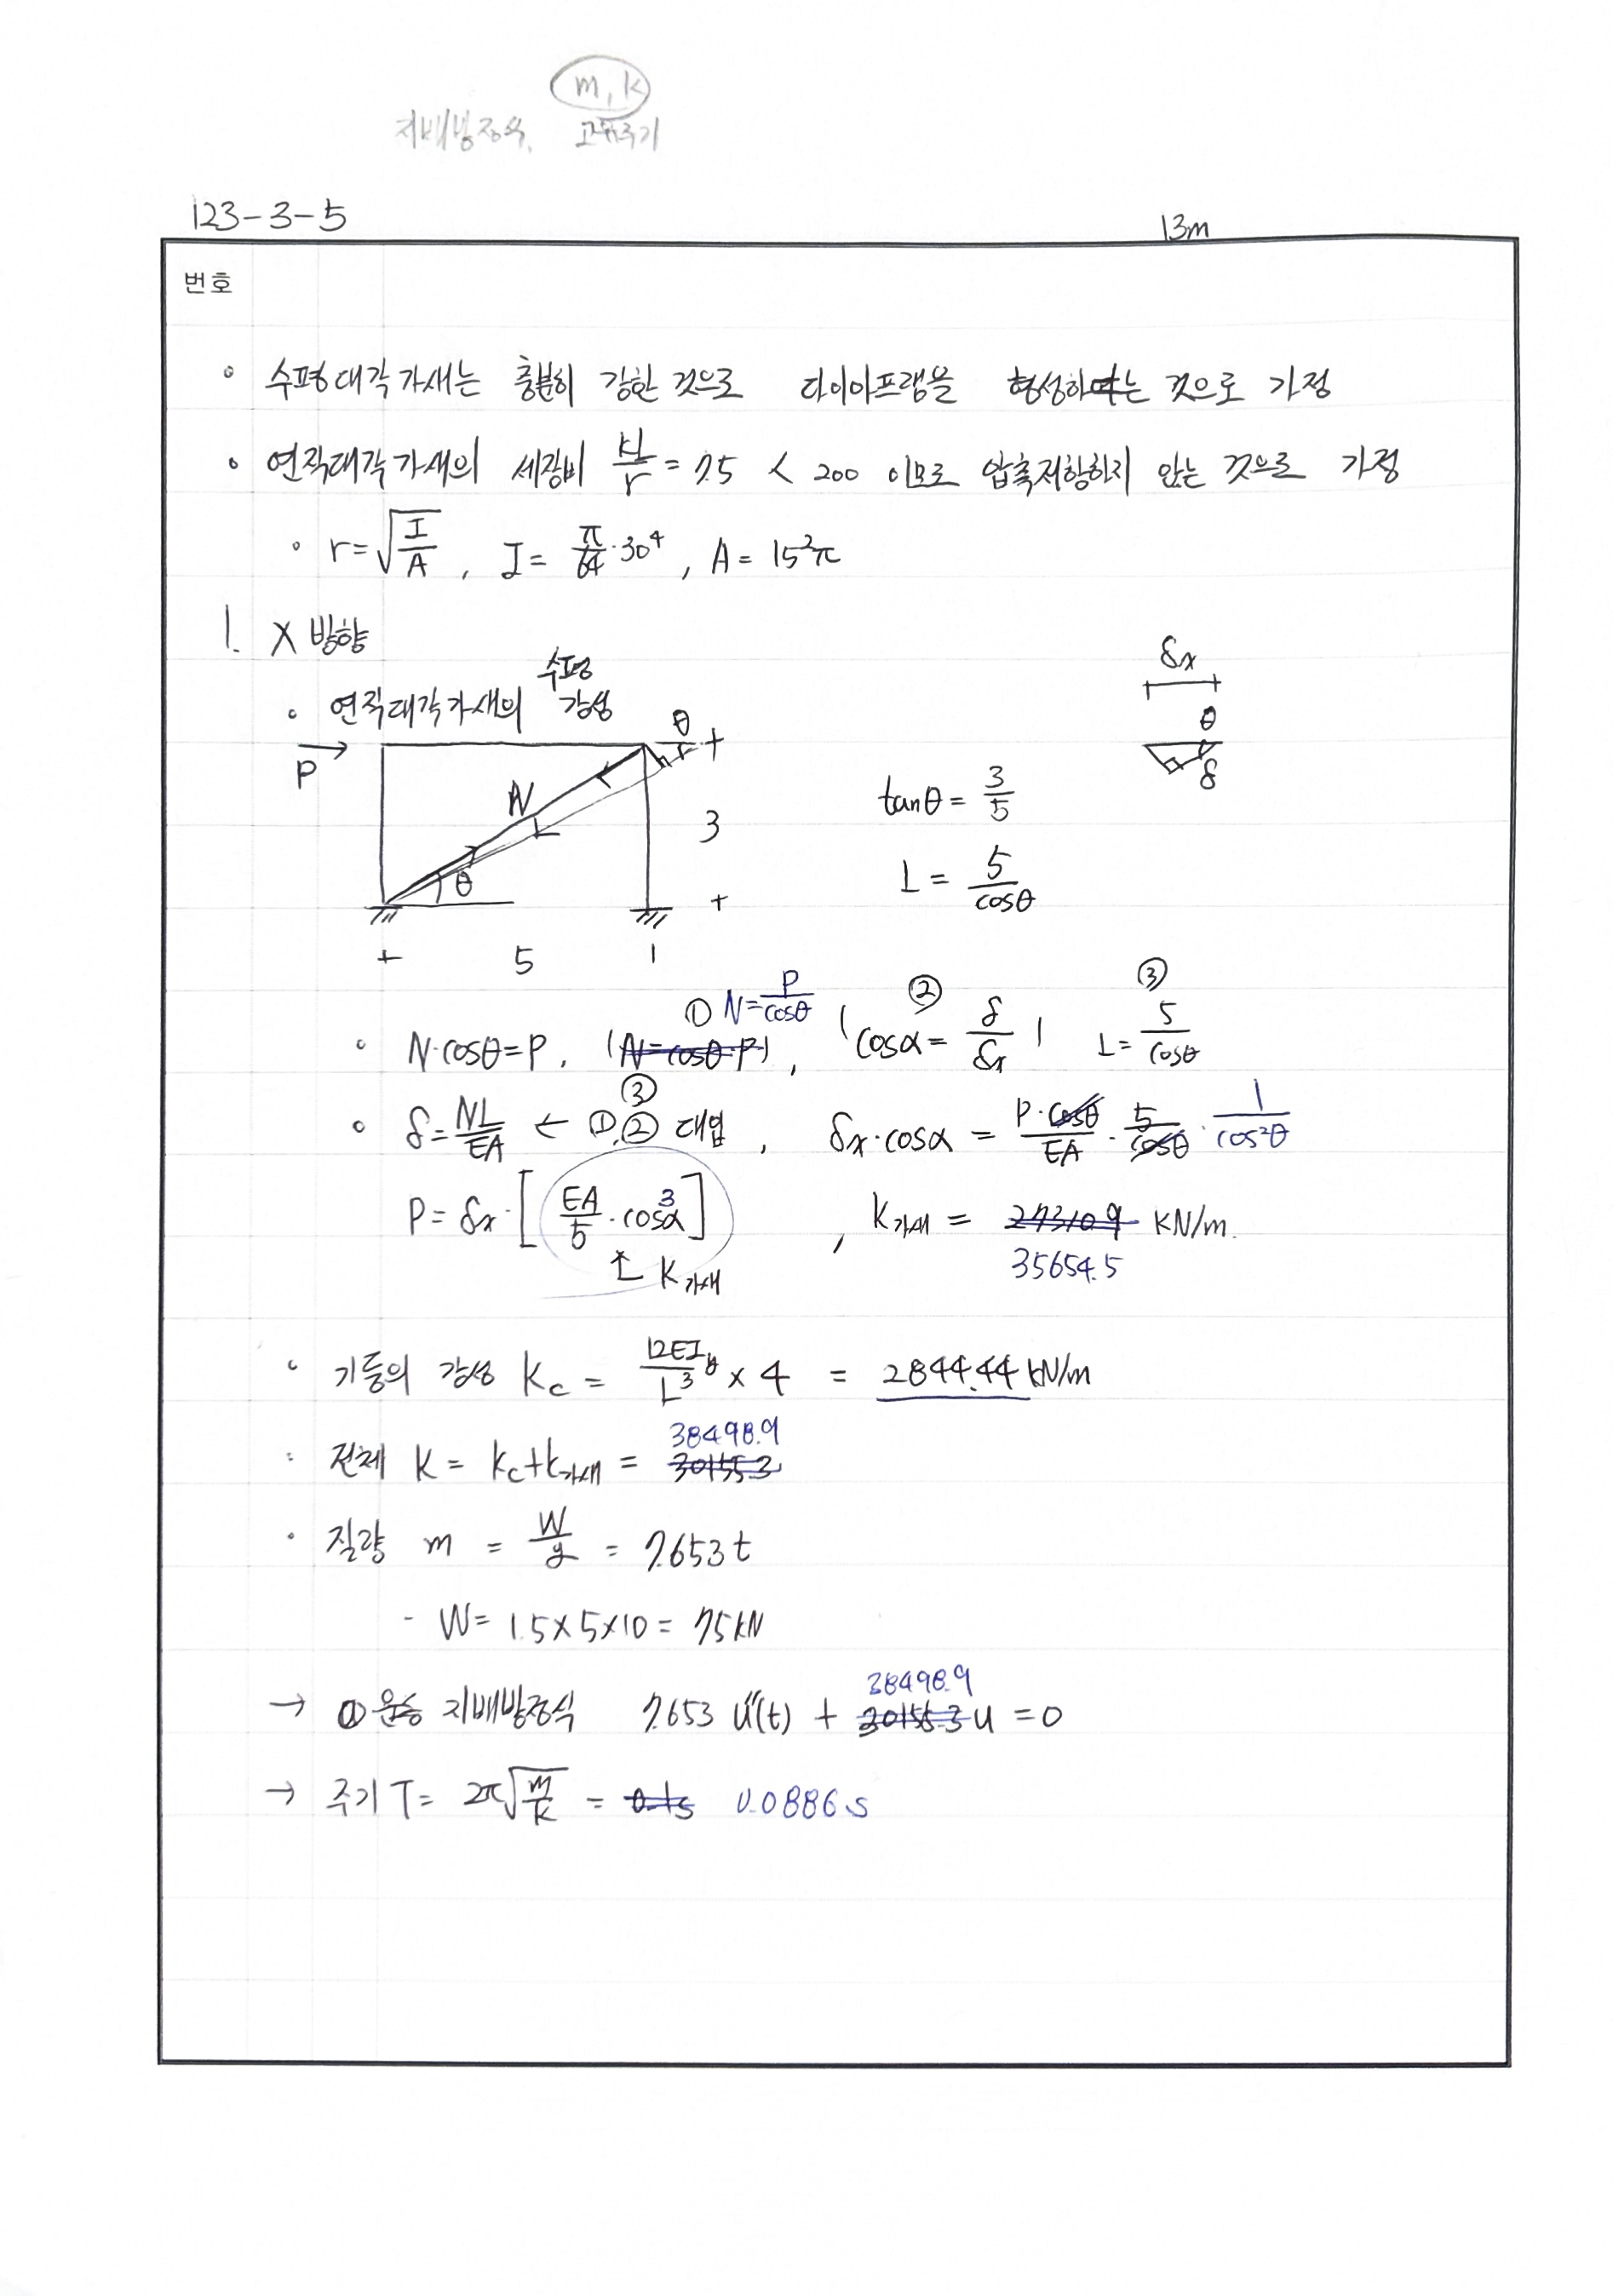 m, k
지배방정식, 고유주기
123-3-5
13m
번호
◦ 수평대각가새는 충분히 강한 것으로 다이아프램을 형성하는 것으로 가정
◦ 연직대각가새의 세장비 kl/r = 75 < 200 이므로 압축저항하지 않는 것으로 가정
◦ r = √(I/A), I = π/64 · 30⁴, A = 15²π
1. X 방향
◦ 연직대각가새의 수평강성
δx
P
N
L
θ
θ
θ
δ
3
5
tanθ = 3/5
L = 5/cosθ
◦ N·cosθ = P, ① N = P/cosθ (N = cosθ·P), ② (cosα = δ/δx) ③ L = 5/cosθ
◦ δ = NL/EA ← ①,②③ 대입, δx·cosα = P·cosθ/EA · 5/cosθ · 1/cos²θ
P = δx·[EA/5 · cos³α], k가새 = 27310.9 kN/m.
↑ k가새
35654.5
◦ 기둥의 강성 kc = 12EIy/L³ × 4 = 2844.44 kN/m
38498.9
◦ 전체 K = kc + k가새 = 30155.3
◦ 질량 m = W/g = 7.653 t
- W = 1.5×5×10 = 75kN
38498.9
→ ① 운동 지배방정식 7.653 ü(t) + 30155.3 u = 0
→ 주기 T = 2π√(m/k) = 0.1s 0.0886s